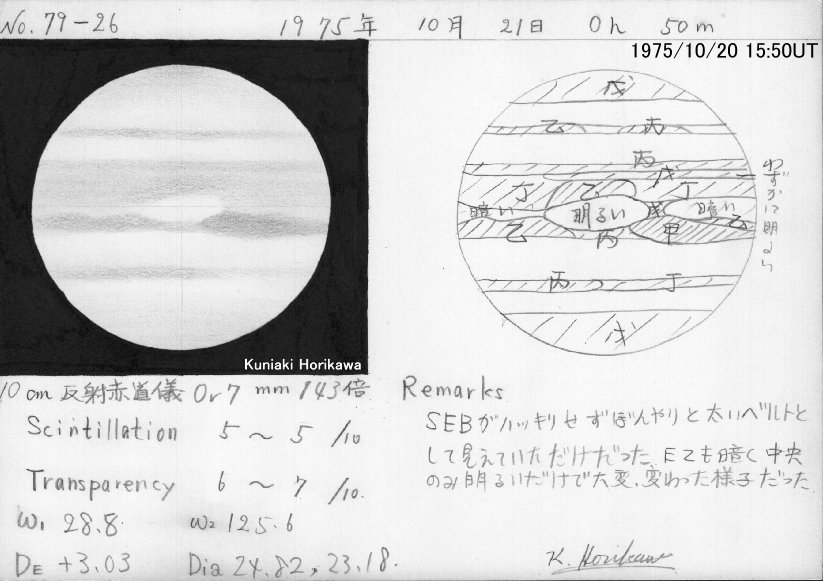 No. 79-26 1975年 10月 21日 0h 50m
1975/10/20 15:50UT
戊
乙 丙
丙
戊
丁 乙 丁
暗い 明るい 戊 暗い
乙 丙 甲 乙
わずかに明るい
丙 丁
戊
Kuniaki Horikawa
10cm 反射赤道儀 Or7mm 143倍
Scintillation 5~5/10
Transparency 6~7/10.
ω₁ 28.8 ω₂ 125.6
DE +3.03 Dia 24.82, 23.18.
Remarks
SEBがハッキリせずぼんやりと太いベルトと
して見えていただけだった。EZも暗く中央
のみ明るいだけで大変、変わった様子だった
K. Horikawa